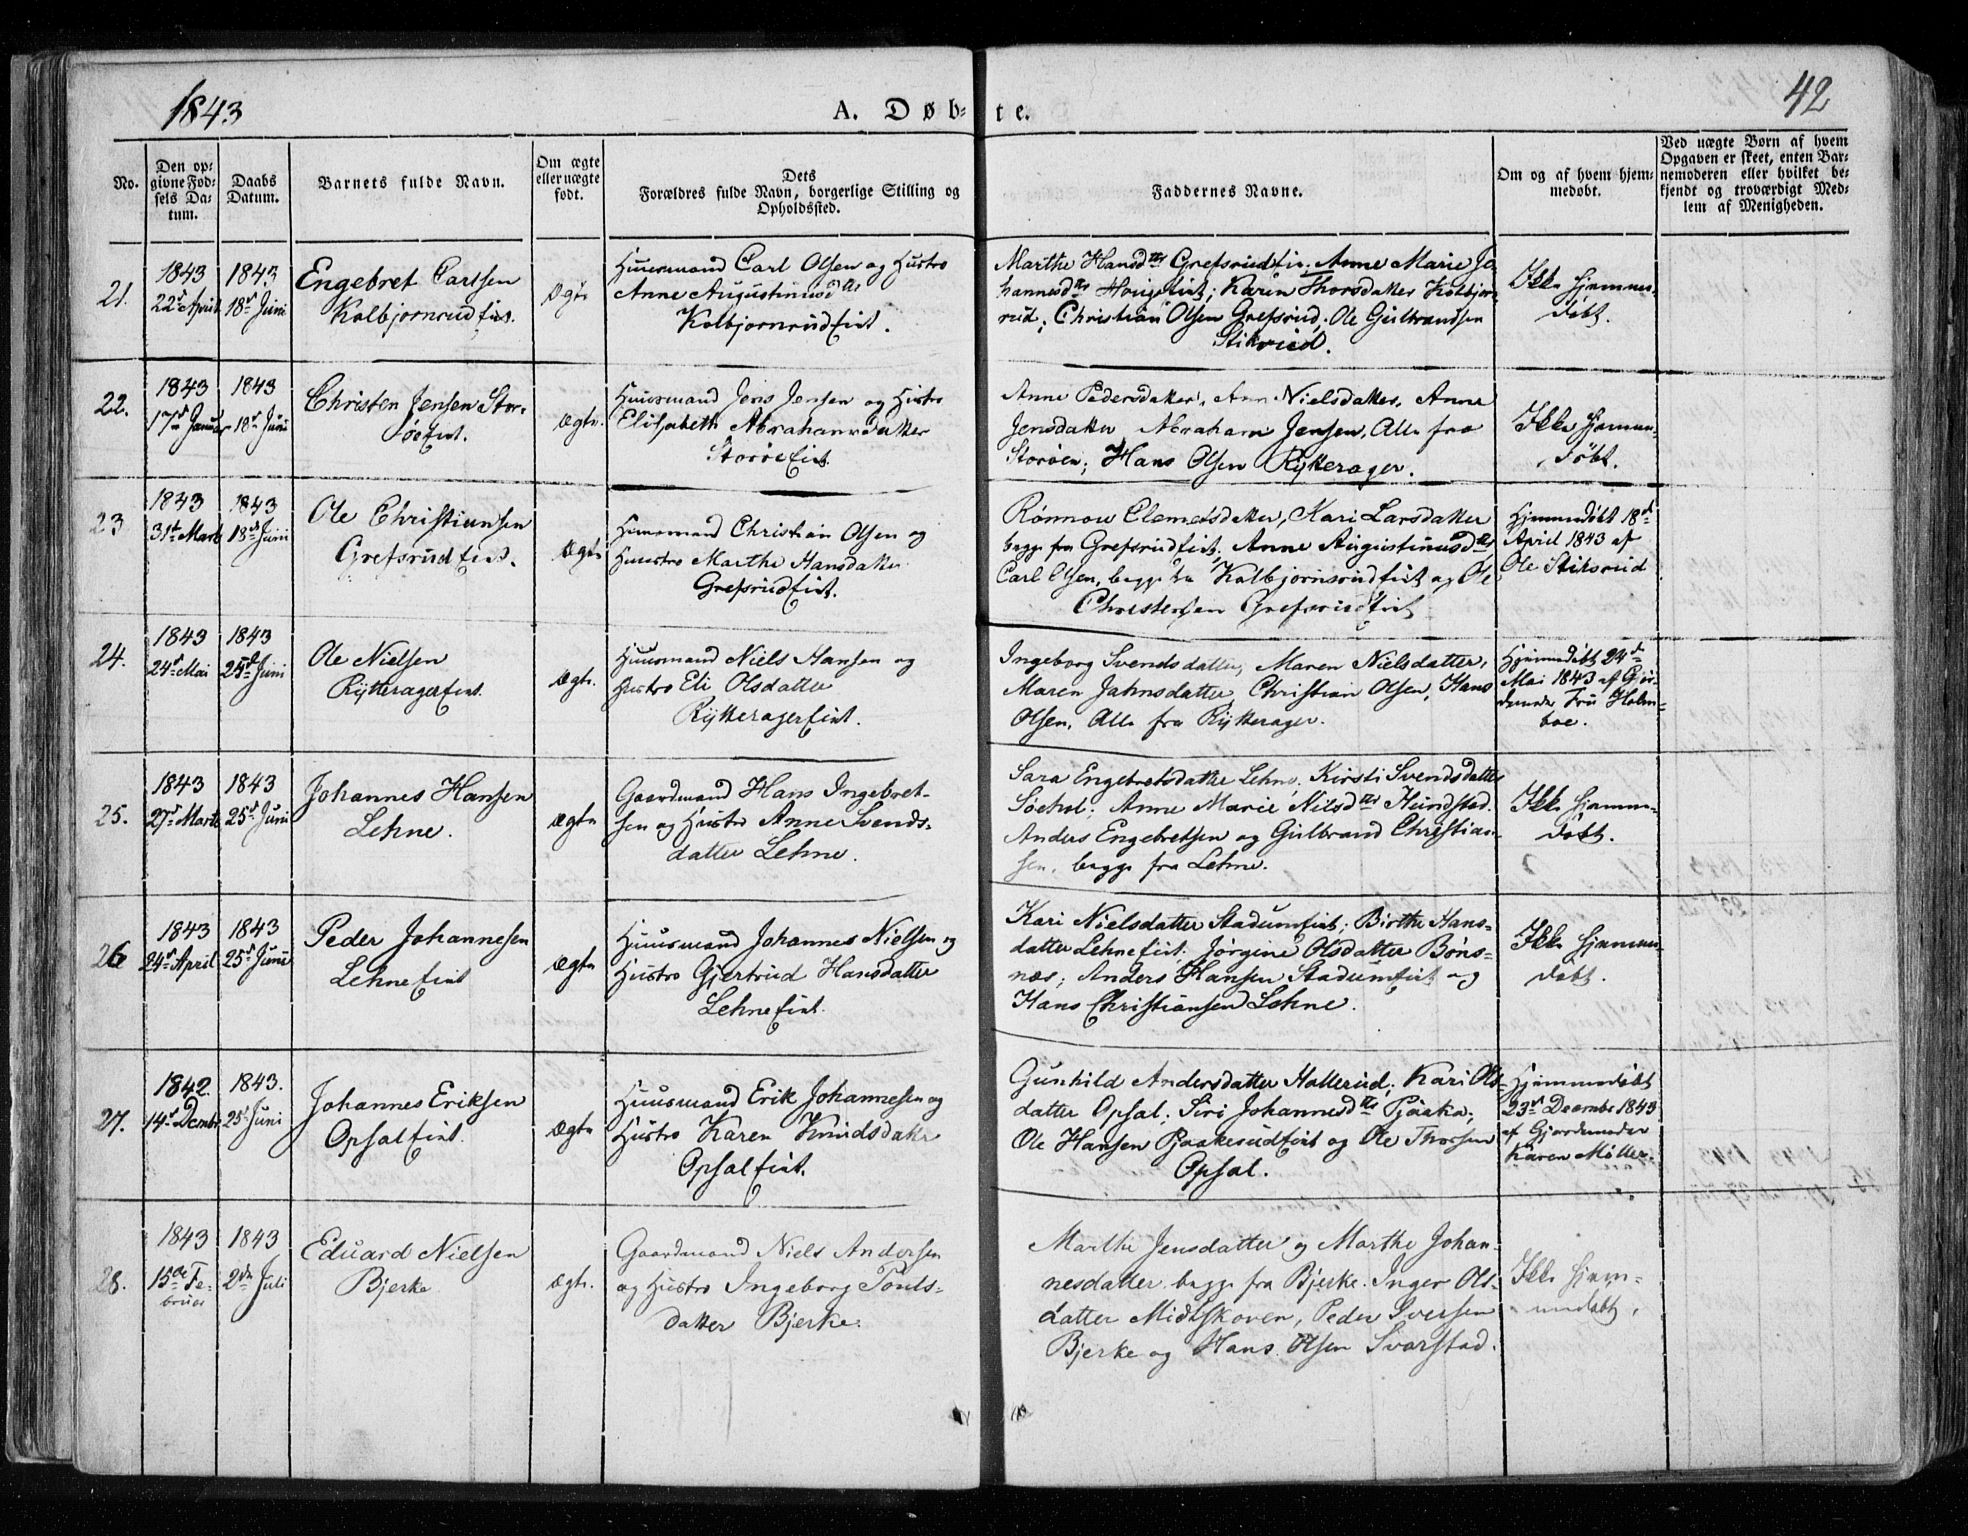 1843
A. Døb-te.
42
No.
Den op-
givne Fød-
sels Da-
tum.
Daabs
Datum.
Barnets fulde Navn.
Om ægte
eller uægte
født.
Dets
Forældres fulde Navn, borgerlige Stilling og
Opholdssted.
Faddernes Navne.
Om og af hvem hjem-
medøbt.
Ved uægte Børn af hvem
Opgaven er skeet, enten Bar-
nemoderen eller hvilket be-
kjendt og troværdigt Med-
lem af Menigheden.
21.
1843
22de April
1843
18de Juni
Engebret Carlsen
Kolbjornrudeiet.
Ægte
Huusmand Carl Olsen og Hustro
Anne Augustinusdtr
Kolbjornrudeiet.
Marthe Hansdtr Grefsrudeie. Anne Marie Jo
hannesdtr Hougeeiet; Karen Thorsdatter Kolbjor-
rud; Christian Olsen Grefsrud; Ole Gulbrandsen
Stiksrud.
Ikke Hjemme-
døbt.
22.
1843
17de Januar
1843
18de Juni
Christen Jensen Stor-
øeeiet.
Ægte.
Huusmand Jens Jensen og Hustro
Elisabeth Abrahamsdatter
Storøeeiet.
Anne Pedersdatter, Ann Nielsdatter, Anne
Jensdatter Abraham Jensen, Alle fra
Storøen; Hans Olsen Rytterager.
Ikke Hjemme-
døbt.
23
1843
31te Marts
1843
18de Juni
Ole Christiansen
Grefsrudeiet.
Ægte
Huusmand Christian Olsen og
Huustro Marthe Hansdatter
Grefsrudeiet.
Rønnow Clemetsdatter, Kari Larsdatter
begge fra Grefsrudeiet; Anne Augustinusdtr
Carl Olsen, begge fra Kolbjornsrudeiet og Ole
Christensen Grefsrudeiet
Hjemmedøbt 18de
April 1843 af
Ole Stiksrud
24.
1843
24de Mai
1843
25de Juni
Ole Nielsen
Rytteragereiet.
Ægte.
Huusmand Niels Hansen og
Hustro Eli Olsdatter
Rytteragereiet.
Ingeborg Svendsdatter, Maren Nielsdatter,
Maren Jahnsdatter, Christian Olsen, Hans
Olsen, Alle fra Rytterager.
Hjemmedøbt 24de
Mai 1843 af Gjor-
demoder Fru Holm-
boe.
25.
1843
27de Marts
1843
25de Juni
Johannes Hansen
Lehne.
Ægte
Gaardmand Hans Ingebret-
sen og Hustro Anne Svends-
datter Lehne.
Sara Engebretsdatter Lehne, Kirsti Svendsdatter
Søehol; Anne Marie Nilsdtr Hundstad.
Anders Engebretsen og Gulbrand Christian-
sen, begge fra Lehne.
Ikke Hjemme-
døbt.
26
1843
24de April
1843
25de Juni
Peder Johannesen
Lehneeiet
Ægte
Huusmand Johannes Nielsen og
Hustro Gjertrud Hansdatter
Lehneeiet.
Kari Nielsdatter Stadumeiet; Birthe Hans-
datter Lehneeiet; Jørgine Olsdatter Bøns-
næs; Anders Hansen Stadumeiet og
Hans Christiansen Lehne.
Ikke Hjemme-
døbt.
27.
1842.
14de Decmbr
1843.
25de Juni
Johannes Eriksen
Opsaleiet.
Ægte
Huusmand Erik Johannesen og
Hustro Karen Knudsdatter
Opsaleiet.
Gunhild Andersdatter Hallerud; Kari Ols-
datter Opsal; Siri Johannesdtr Pjaaka;
Ole Hansen Pjaakerudeiet og Ole Thorsen
Opsal.
Hjemmedøbt
23de Decmbr 1843
af Gjordemoder
Karen Møller.
28.
1843
15de Fe-
bruar
1843
2den Juli
Eduard Nielsen
Bjerke
Ægte.
Gaardmand Niels Andersen
og Hustro Ingeborg Pouls-
datter Bjerke.
Marthe Jensdatter og Marthe Johan-
nesdatter begge fra Bjerke. Inger Ols-
datter Midtskoven, Peder Iversen
Bjerke og Hans Olsen Svarstad.
Ikke Hjem-
medøbt.